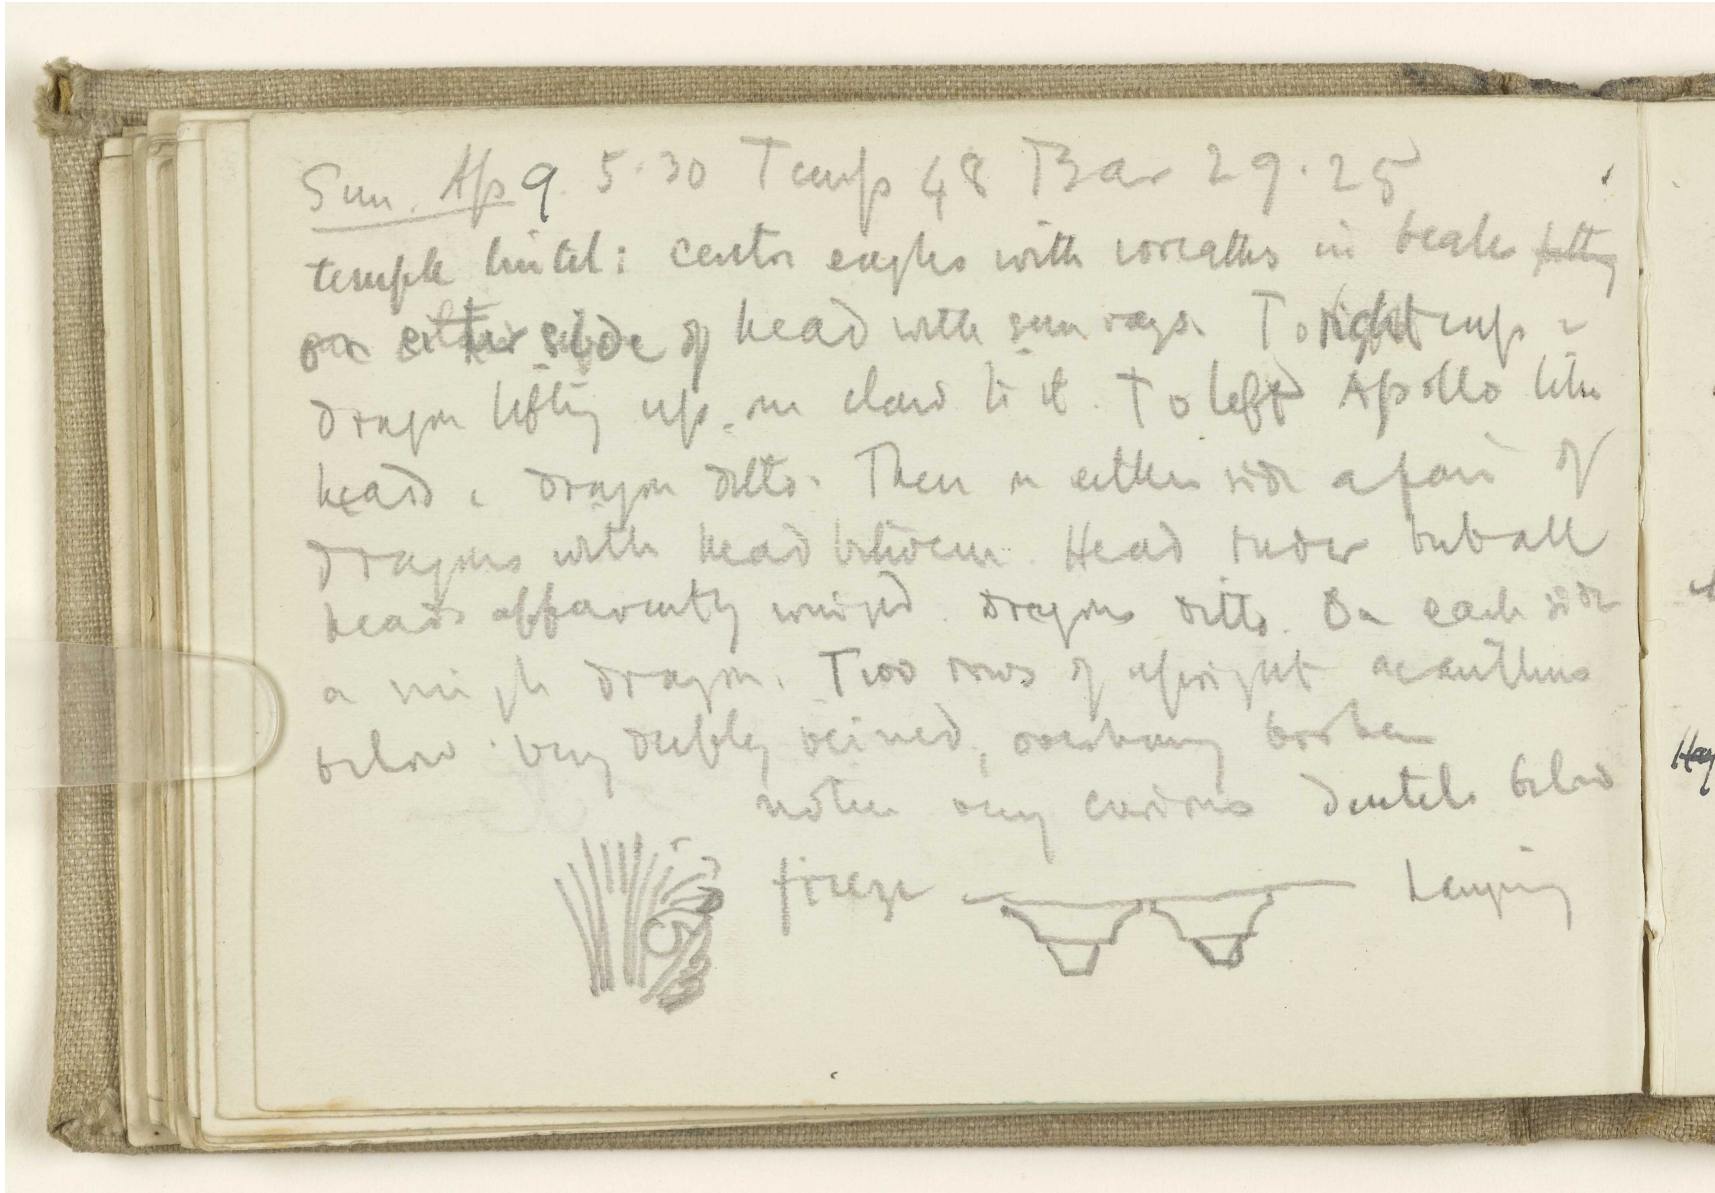 Sun. Ap 9. 5.30 Temp 48 Bar 29.25
temple lintel: center eagles with wreaths in beaks
on either side of head with sun rays. To right cup
dragon lifting up claw to it. To left Apollo like
head dragon ditto. Then on either side a pair of
dragons with head between. Head under but all
heads apparently winged. Dragons ditto. On each side
a single dragon. Two rows of upright acanthus
below very deeply veined, overhang broken
notice very curious dentels below
frieze hanging